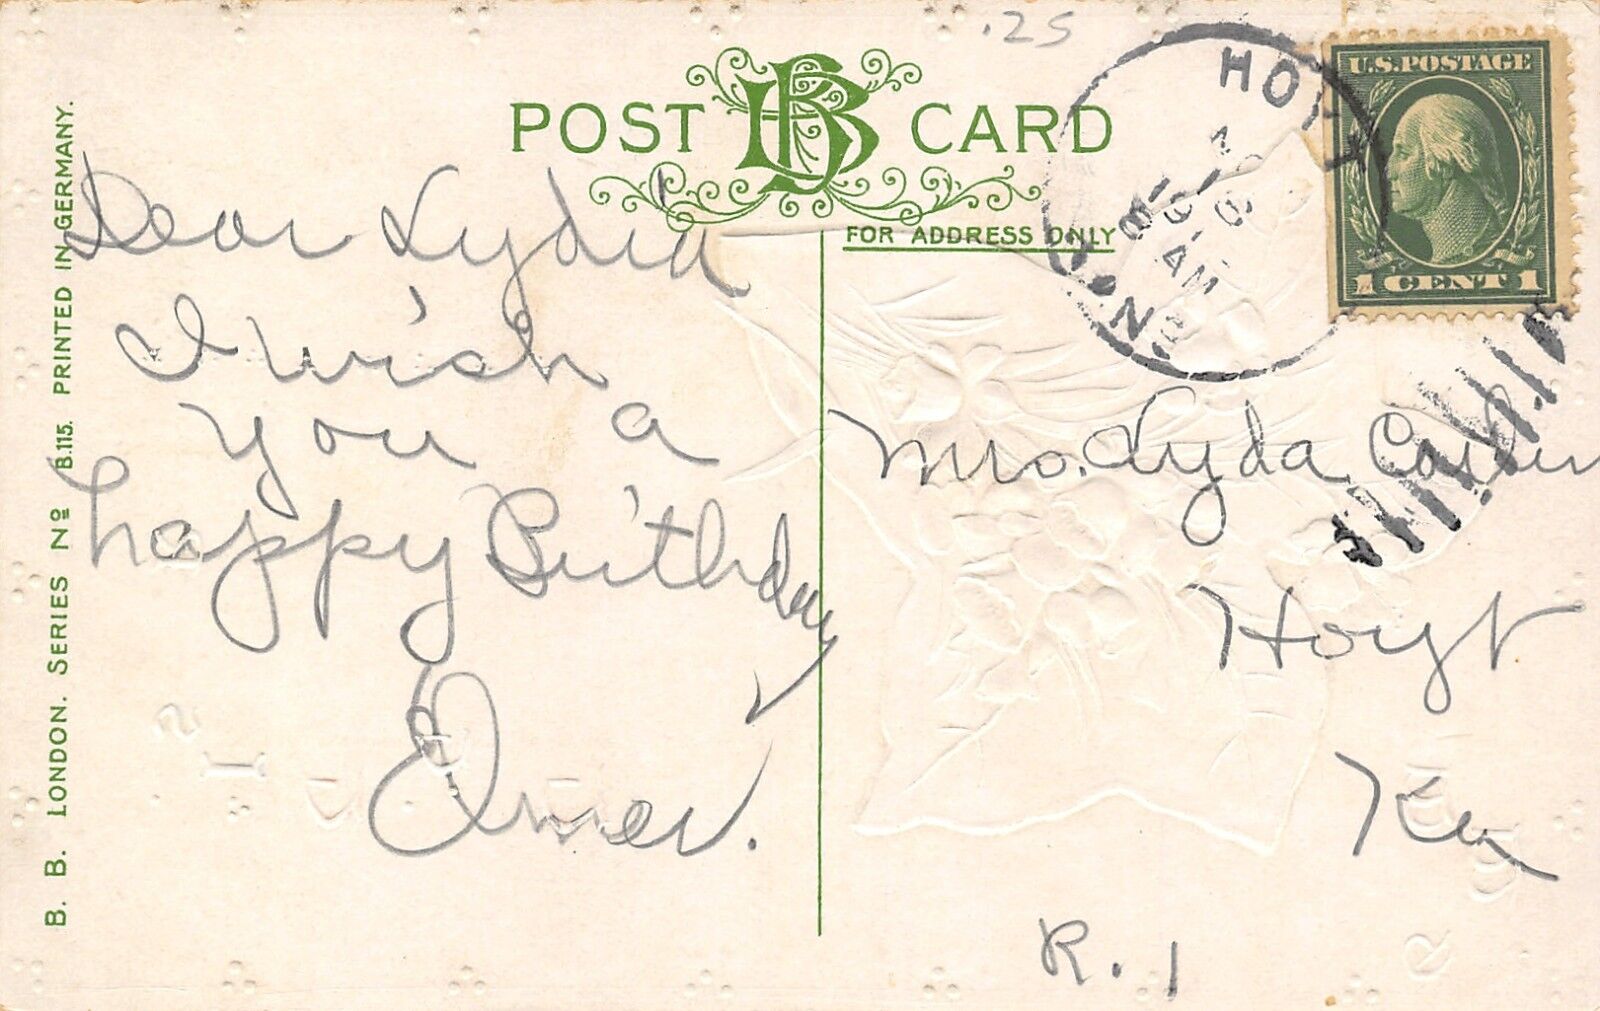 .25
POST BB CARD
FOR ADDRESS ONLY
U.S. POSTAGE
1 CENT 1
HOYT
8 AM
Dear Lydia
I wish
you a
happy Birthday
Elmer.
Mrs. Lyda
Hoyt
R. 1
B. B. LONDON. SERIES No B.115. PRINTED IN GERMANY.